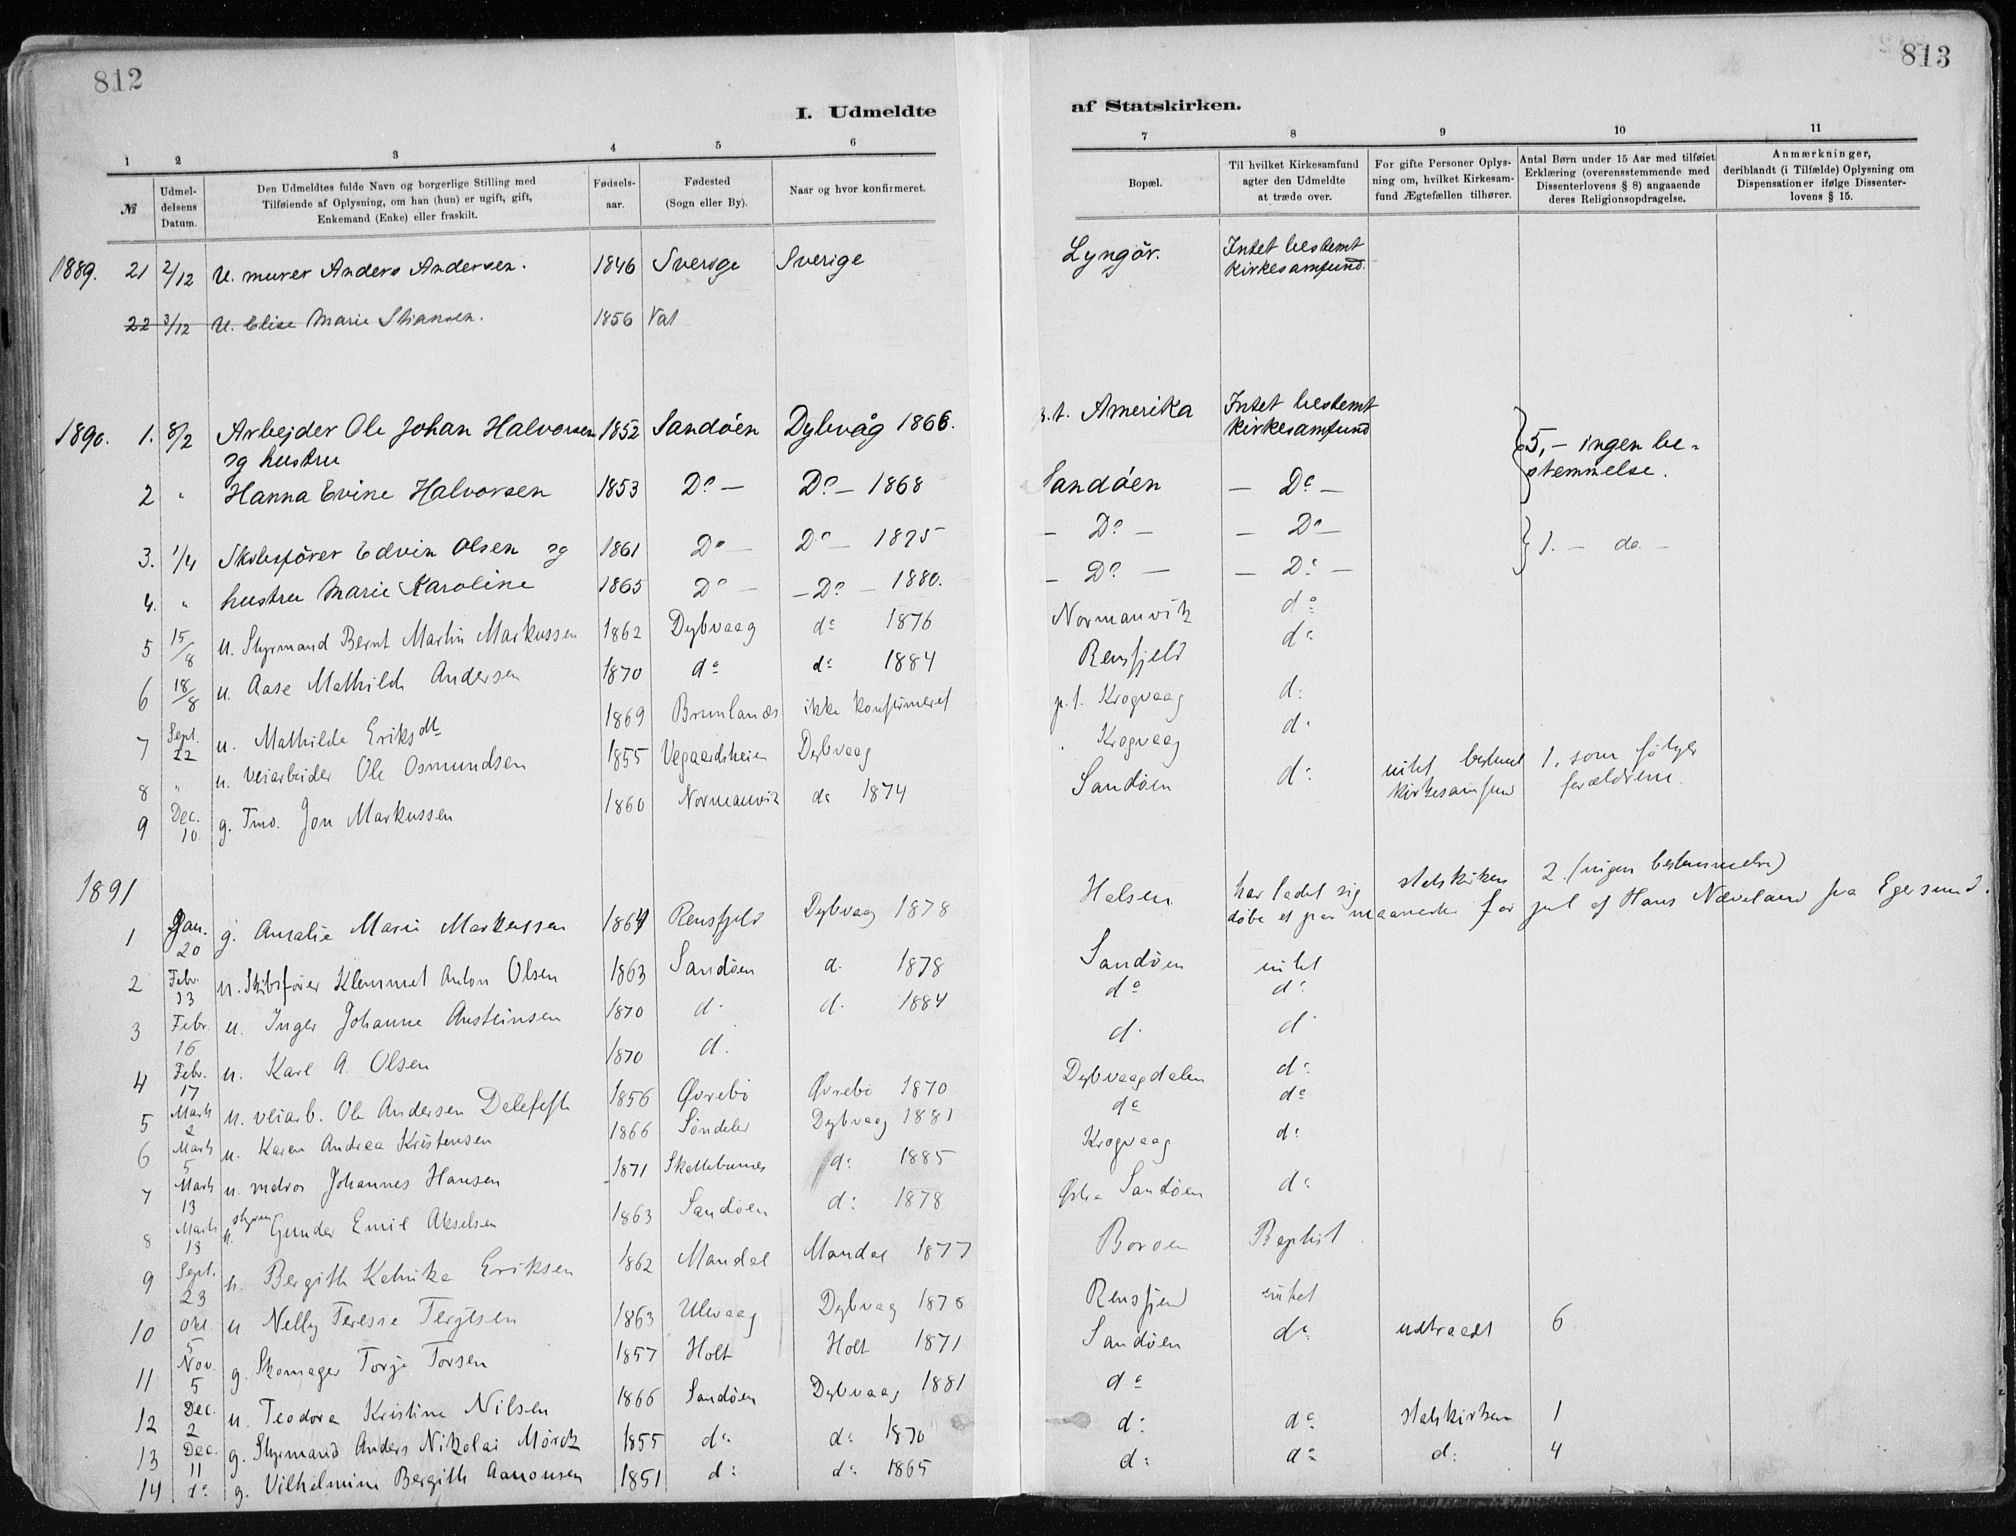 812
813
I. Udmeldte
af Statskirken.
1 2 3 4 5 6
7 8 9 10 11
№
Udmel-
delsens
Datum.
Den Udmeldtes fulde Navn og borgerlige Stilling med
Tilføiende af Oplysning, om han (hun) er ugift, gift,
Enkemand (Enke) eller fraskilt.
Fødsels-
aar.
Fødested
(Sogn eller By).
Naar og hvor konfirmeret.
Bopæl.
Til hvilket Kirkesamfund
agter den Udmeldte
at træde over.
For gifte Personer Oplys-
ning om, hvilket Kirkesam-
fund Ægtefællen tilhører.
Antal Børn under 15 Aar med tilføiet
Erklæring (overensstemmende med
Dissenterlovens § 8) angaaende
deres Religionsopdragelse.
Anmærkninger,
deriblandt (i Tilfælde) Oplysning om
Dispensationer ifølge Dissenter-
lovens § 15.
1889. 21 2/12 U. murer Anders Andersen. 1846 Sverige Sverige Lyngør. Intet bestemt
kirkesamfund.
22 3/12 U. Elise Marie 1856
1890. 1. 8/2 Arbejder Ole Johan Halvorsen 1852 Sandöen Dybvåg 1866. Amerika Intet bestemt
og hustru kirkesamfund 5, - ingen be-
2 " Hanna Evine Halvorsen 1853 Do - Do - 1868 Sandöen - Do - stemmelse.
3. 1/4 Skibsfører Edvin Olsen og 1861 Do - Do - 1875 - Do - - Do - 1. - do -
4. " hustru Marie Karoline 1865 Do - - Do - 1880. - Do - - Do -
5 15/8 u. Styrmand Bernt Martin Markussen 1862 Dybvaag do 1876 Normanvik do
6 18/8 u. Aase Mathilde Andersen 1870 do do 1884 Rensfjeld do
7 Sept. 22 u. Mathilde Eriksdtr 1869 Brunlanæs ikke konfirmeret p.t. Krogvaag do
8 " u. veiarbeider Ole Osmundsen 1855 Vegaardsheien Dybvaag Krogvaag do
9 Dec. 10. g. Tmd. Jon Markussen 1860 Normanvik do 1874 Sandøen do intet bestemt 1, som følger
kirkesamfund forældrene.
1891
1 Jan. 20 g. Amalie Marie Markussen 1864 Rensfjeld Dybvaag 1878 Halsen har ladet sig statskirken 2. (ingen bestemmelse)
døbe et par maaneder før jul af Hans Næveland fra Egersund.
2 Febr. 13 u. Skibsfører Klemmet Anton Olsen 1863 Sandøen d. 1878 Sandøen intet
3 Febr. 16 u. Inger Johanne Austeinsen 1870 d. d. 1884 do do
4 Febr. 17 u. Karl A. Olsen 1870 d. d. d.
5 Marts 2 u. veiarb. Ole Andersen 1856 Øvrebø Øvrebø 1870 Dybvaagdalen do
6 Marts 5 u. Karen Andrea Kristensen 1866 Søndeler Dybvaag 1881 do do
7 Marts 13 u. matros Johannes Hansen 1871 do 1885 Krogvaag do
8 Marts 13 u. styrm Gunder Emil Akselsen 1863 Sandøen do 1878 Østre Sandøen do
9 Sept. 23 u. Bergith Eriksen 1862 Mandal Mandal 1877 Borøen Baptist
10 Okt. 5 u. Nelly Teresie Terjesen 1863 Ulevaag Dybvaag 1878 Rensfjeld intet
11 Nov. 5 g. Skomager Torje Torsen 1857 Holt Holt 1871 Sandøen do udtraadt 6
12 Dec. 2 u. Teodora Kristine Nilsen 1866 Sandøen Dybvaag 1881 do
13 Dec. 11 g. Styrmand Anders Nikolai Mørch 1855 do do 1870 do do statskirken 1
14 do g. Vilhelmine Bergith Aanonsen 1851 do do 1865 do do do 4